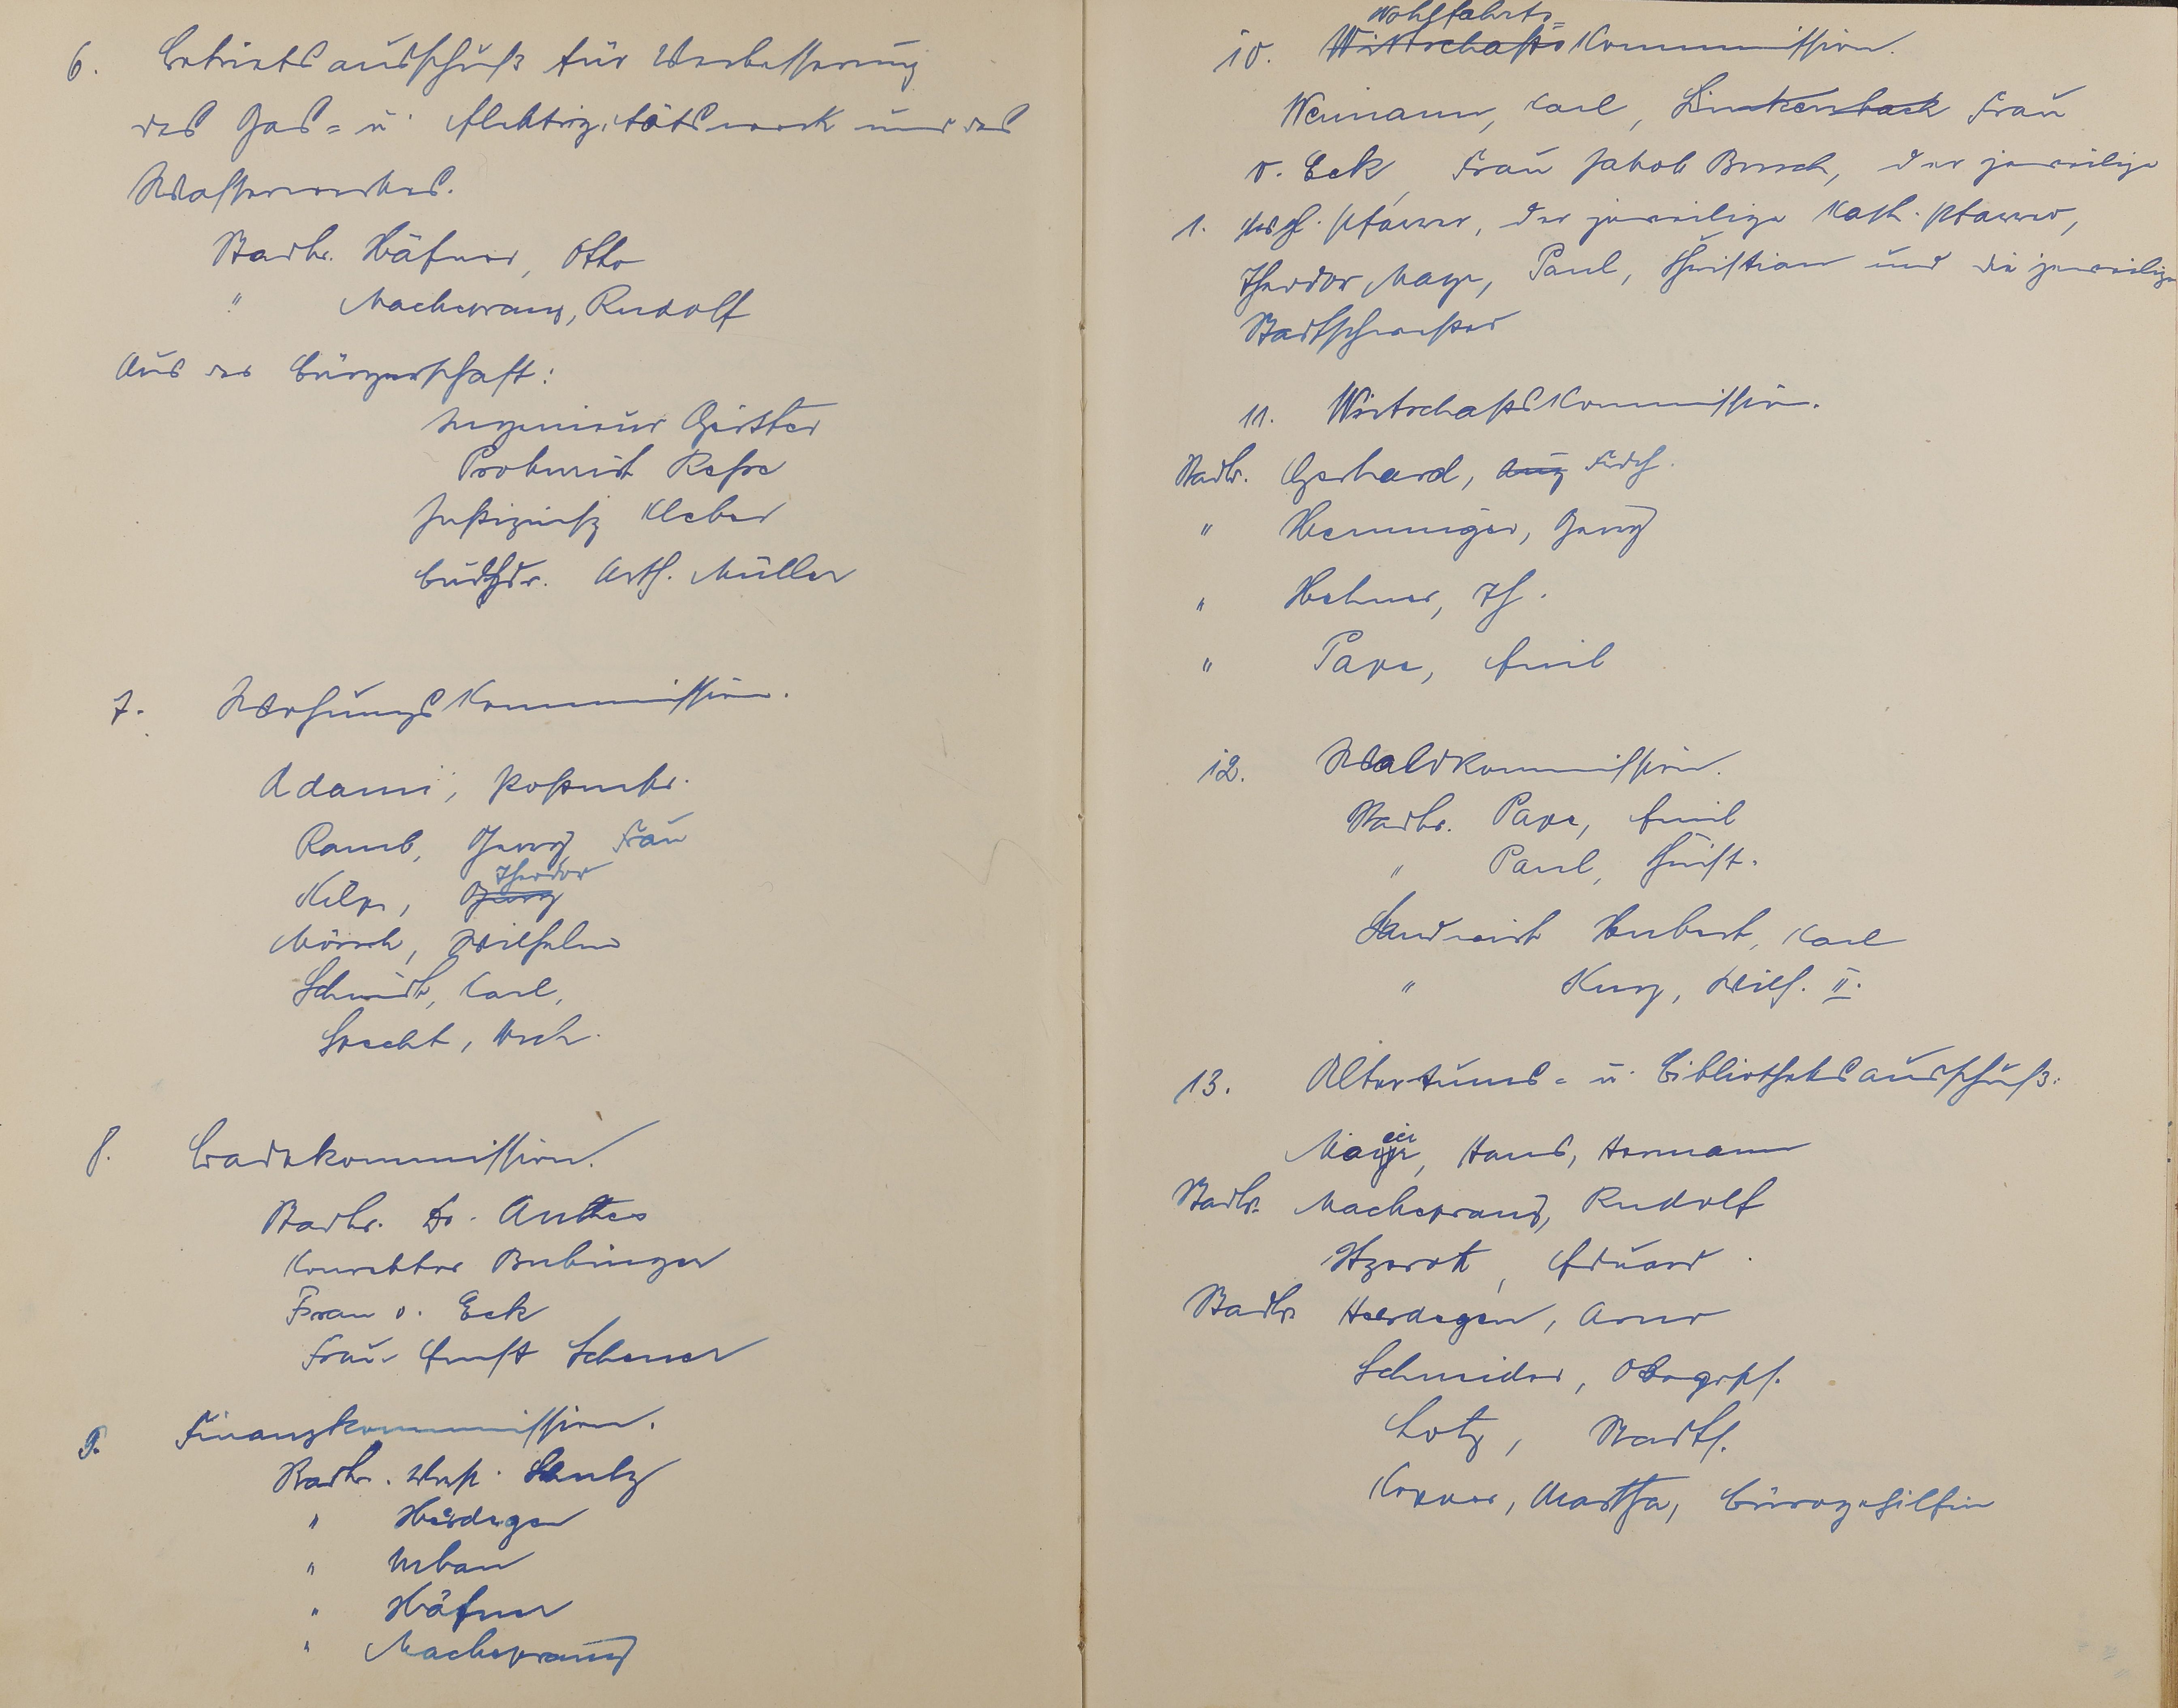 6. Betriebsausschuß für Verbesserung
des Gas= u. Elektrizitätswerk und des
Wasserwerkes.
Stadtr. Häfner, Otto
" Macheprang, Rudolf
Aus der Bürgerschaft:
Ingenieur Gärtter
Prokurist
Justizinsp. Kleber
Buchdr. Arth. Müller
7. Wohnungskommission.
Adami, Postmstr.
Ramb, Georg Frau
Theodor
Kilpp, Georg
Mörsch, Wilhelm
Schmidt, Carl,
Specht, Arch.
8. Badekommission.
Stadtr. Dr. Anthes
Konrektor Bubinger
Frau v. Eck
Frau Ernst Scheuer
9. Finanzkommission.
Stadtr. Insp. Schultz
" Herdegen
" Urban
" Häfner
" Macheprang
Wohlfahrts=
10. Wirtschafts Kommission.
Neumann, Carl, Linkenbach Frau
v. Eck, Frau Jakob Busch, der jeweilige
1. evgl. Pfarrer, der jeweilige Kath. Pfarrer,
Theodor May, Paul, Christian und die jeweilige
Stadtschwester
11. Wirtschaftskommission.
Stadtr. Gerhard, Aug Frdch.
" Henninger, Georg
" Hehner, Th.
" Pape, Emil
12. Waldkommission.
Stadtr. Pape, Emil
" Paul, Christ.
Landwirt Hubert, Karl
" Kurz, Wilh. II.
13. Altertums= u. Bibliotheksausschuß:
eie
Mayer, Hans, Hermann
Stadtr. Macheprang, Rudolf
Itzerott, Eduard
Stadtr. Herdegen, Arno
Schneider,
Lotz, Stadts.
Korper, Martha, Bürogehilfin